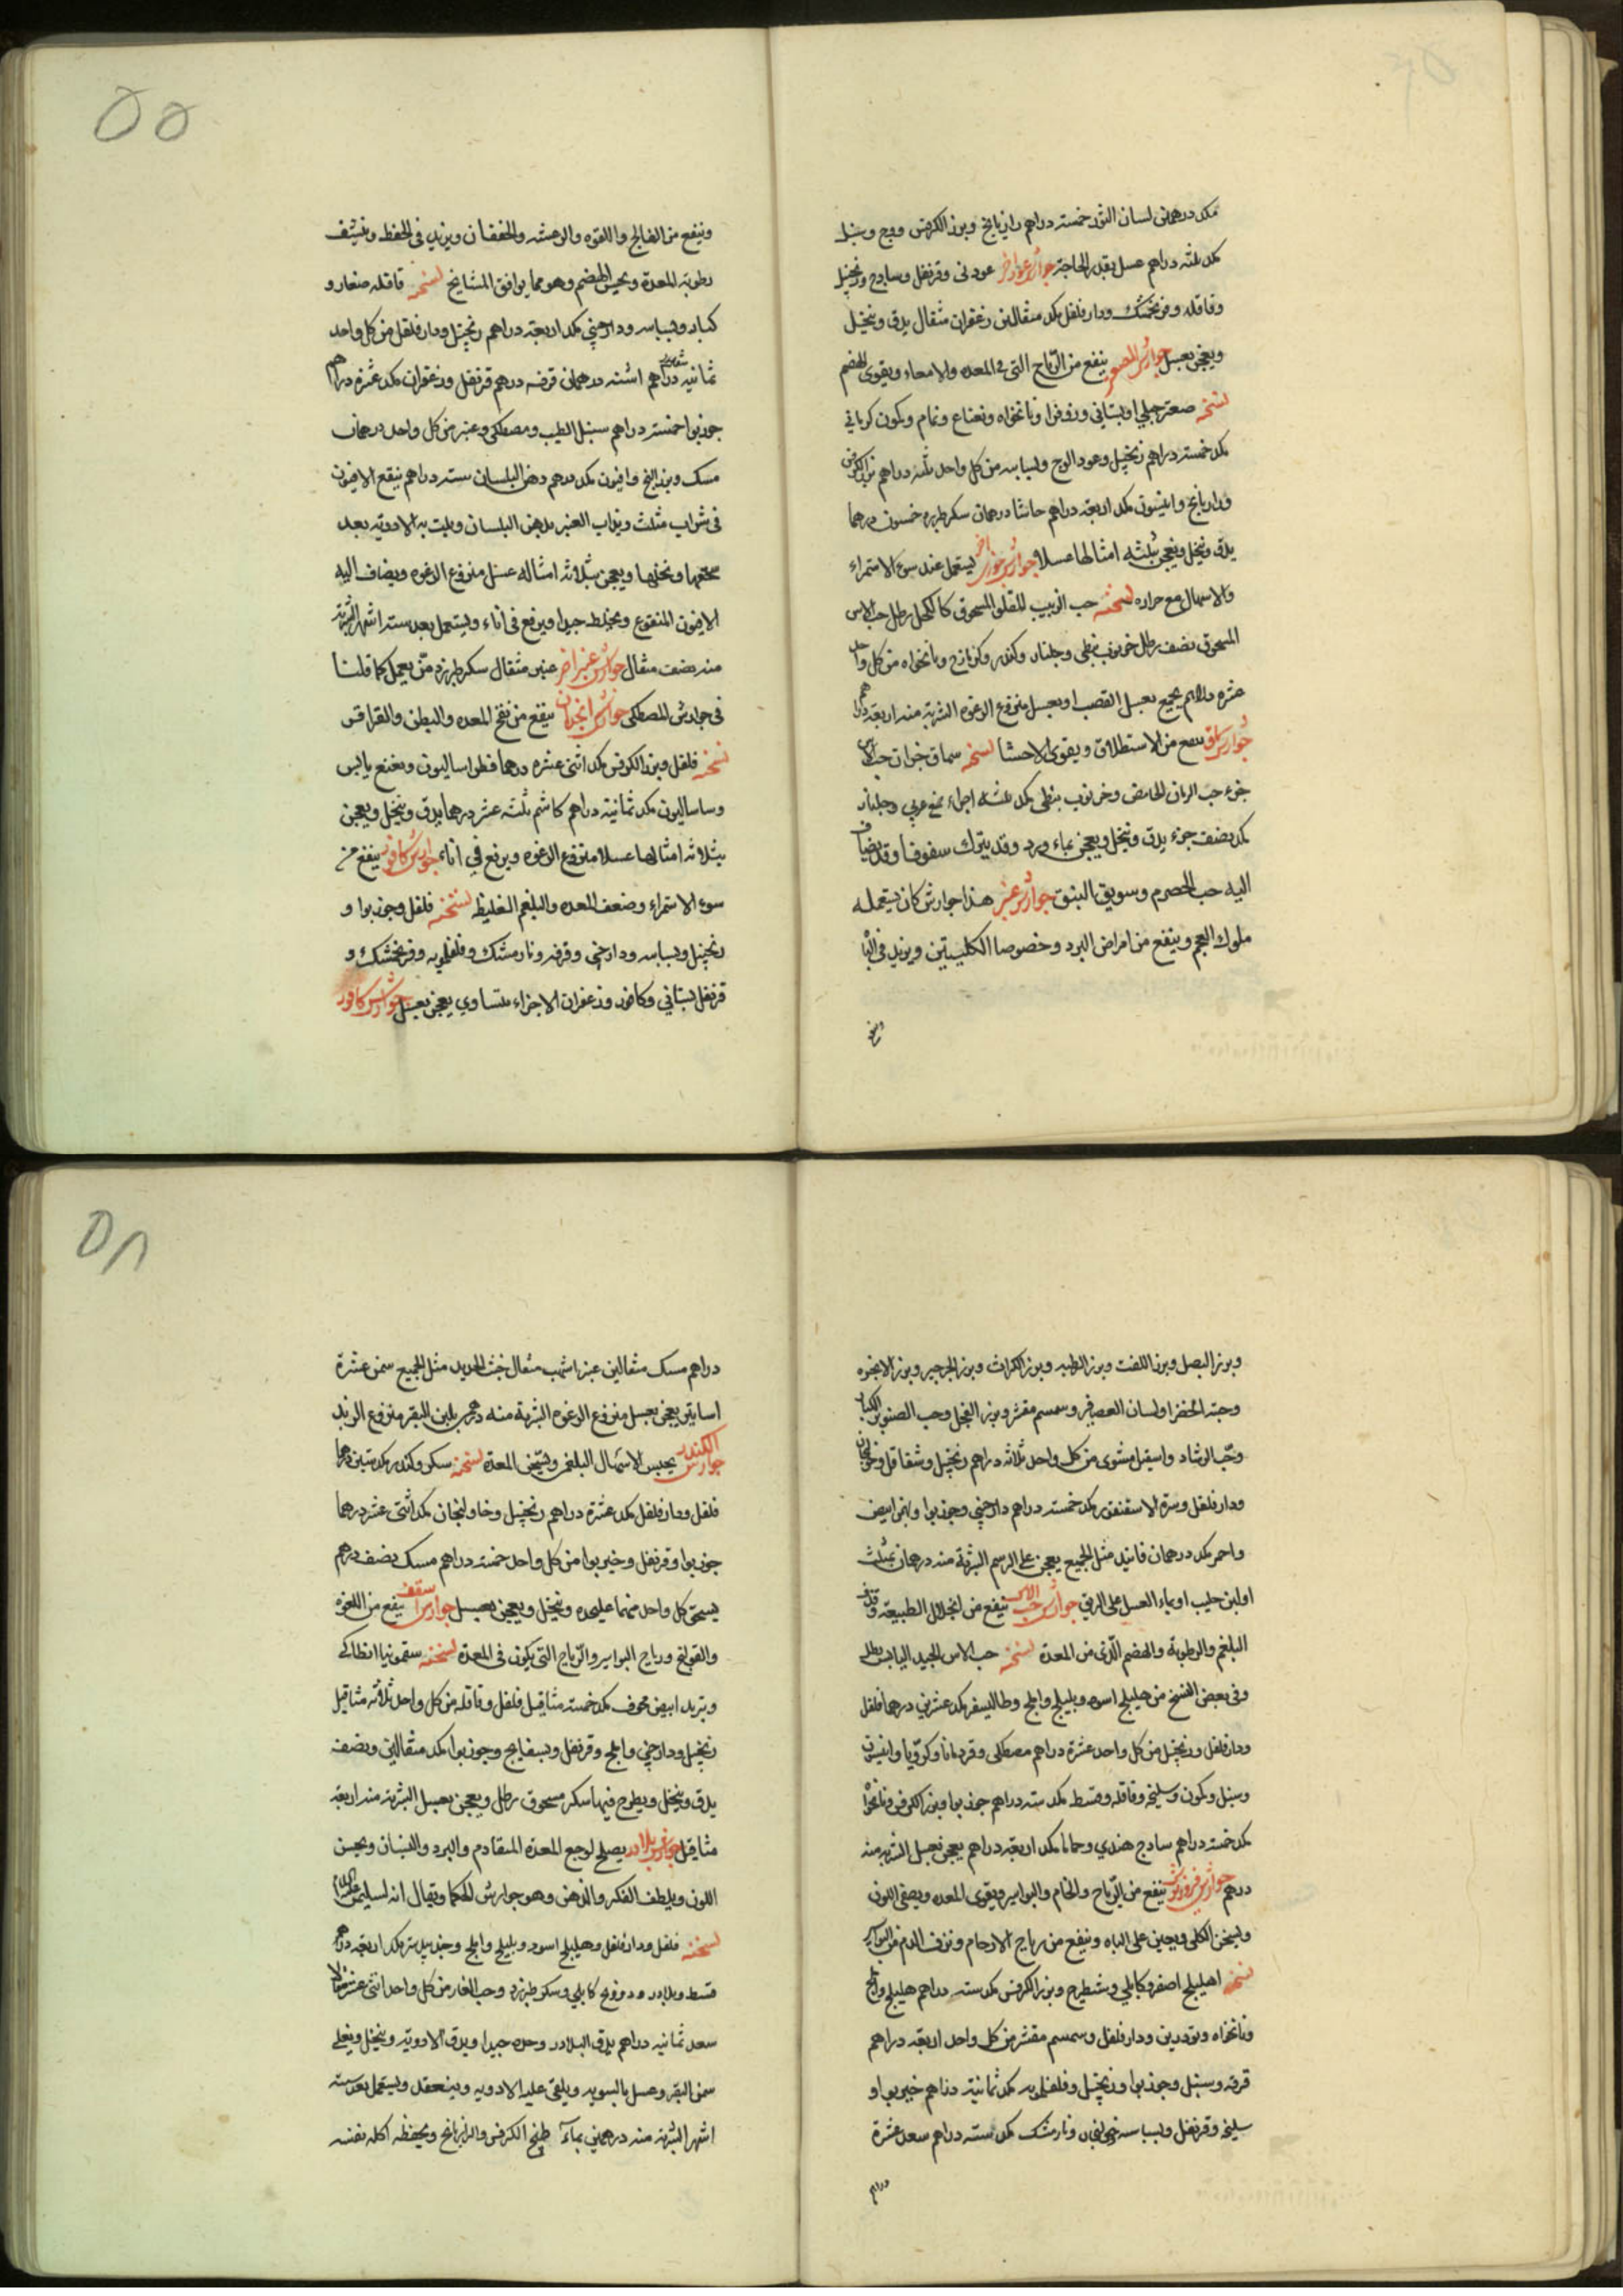 مكد درهمان لسان الثور خمسته دراهم رازيانج وبزر الكرفس ووج وسنبل
مكد ثلثه دراهم عسل بقدر الحاجة جوارش عود اخر عود نى وقرنفل وسادج وزنجبيل
وقاقله وفرنجمشك ودارفلفل مكد مثقالين زعفران مثقال يدق وينخل
ويعجن بعسل جوارش الهضم ينفع من الرياح التى فى المعده والامعاء ويقوى الهضم
نسخه صعتر جبلي او بستاني وزوفرا ونانخواه ونعناع ونمام وكمون كرماني
مكد خمسته دراهم زنجبيل وعود الوج وبسباسه من كل واحد ثلثه دراهم بزر الكرفس
ورازيانج وانيسون مكد اربعة دراهم حاشا درهمان سكر طبرزد خمسون درهما
يدق وينخل ويعجن بثلثه امثالها عسلا جوارش خوزى اخر يستعمل عند سوء الاستمراء
والاسهال مع حراره نسخته حب الزبيب المقلو المسحوق كالكحل رطل حب الاس
المسحوق نصف رطل خرنوب نبطي وجلنار وكندر وكزمازج ونانخواه من كل واحد
عشره دراهم يجمع بعسل القصب او بعسل منزوع الرغوه الشربة منه اربعة دراهم
جوارش سماق ينفع من الاستطلاق ويقوى الاحشا نسخه سماق خزان حب الاس
جزء حب الرمان الحامض وخرنوب نبطى مكد ثلثه اجزاء صمغ عربي وجلنار
مكد نصف جزء يدق وينخل ويعجن بماء ورد وقد يترك سفوفا وقد يضاف
اليه حب الحصرم وسويق النبق جوارش عنبر هذا جوارش كان يستعمله
ملوك العجم وينفع من امراض البرد وخصوصا الكليتين ويزيد فى الباه
وينفع
٥٥
وينفع من الفالج واللقوه والرعشه والخفقان ويزيد فى الحفظ وينشف
رطوبة المعدة ويحسن الهضم وهو مما يوافق المشايخ نسخه قاقله صغار و
كبار وبسباسه ودارصيني مكد اربعة دراهم زنجبيل ودارفلفل من كل واحد
ثمانيه دراهم اشنه درهمان قرفه درهم قرنفل وزعفران مكد عشره دراهم
جوزبوا خمسته دراهم سنبل الطيب ومصطكى وعنبر من كل واحد درهمان
مسك وبزر البنج وافيون مكد درهم دهن البلسان سته دراهم ينقع الافيون
فى شراب مثلث ويذاب العنبر بدهن البلسان ويلت به الادويه بعد
سحقها ونخلها ويعجن بثلاثه امثاله عسل منزوع الرغوه ويضاف اليه
الافيون المنقوع ويخلط جيدا ويرفع فى اناء ويستعمل بعد سته اشهر الشربة
منه نصف مثقال جوارش عنبر اخر عنبر مثقال سكر طبرزد من يعمل كما قلنا
فى جوارش المصطكى جوارش انجدان ينفع من نفخ المعده والبطن والقراقر
نسخه فلفل وبزر الكرفس مكد اثنى عشره درهما فطراساليون ونعنع يابس
وساساليون مكد ثمانية دراهم كاشم ثلثه عشر درهما يدق وينخل ويعجن
بثلاثه امثالها عسلا منزوع الرغوه ويرفع في اناء جوارش كافور ينفع من
سوء الاستمراء وضعف المعده والبلغم الغليظ نسخته فلفل وجوزبوا و
زنجبيل وبسباسه ودارصني وقرفه ونارمشك وفلفلمويه وفرنجمشك و
قرنفل بستاني وكافور وزعفران الاجزاء متساوي يعجن بعسل جوارش كافور
وبزر البصل وبزر اللفت وبزر الرطبه وبزر الكراث وبزر الجرجير وبزر الانجره
وحبة الخضرا ولسان العصافير وسمسم مقشر وبزر الفجل وحب الصنوبر الكبار
وحب الرشاد واسقيل مشوى من كل واحد ثلاثه دراهم زنجبيل وشقاقل وخولنجان
ودارفلفل وسرة الاسقنقور مكد خمسته دراهم دارصيني وجوزبوا وبهمن ابيض
واحمر مكد درهمان فانيد مثل الجميع يعجن على الرسم الشربة منه درهمان بمثلث
او لبن حليب او بماء العسل على الريق جوارش حب الاس ينفع من انحلال الطبيعة وقذف
البلغم والرطوبة والهضم الردى من المعدة نسخته حب الاس الجيد اليابس رطل
وفى بعض النسخ من هليلج اسود وبليلج واملج وطاليسفر مكد عشرين درهما فلفل
ودارفلفل وزنجبيل من كل واحد عشرة دراهم مصطكى وقردمانا وكرويا وانيسون
وسنبل وكمون وسليخه وقاقله وقسط مكد سته دراهم جوزبوا وبزر الكرفس ونانخواه
مكد خمسته دراهم سادج هندي وحماما مكد اربعة دراهم يعجن بعسل الشربة منه
درهم جوارش فيروزنوش ينفع من الرياح والخام والبواسير ويقوى المعده ويصفى اللون
ويسخن الكلى ويعين على الباه وينفع من رياح الارحام ونزف الدم من البواسير
نسخه اهليلج اصفر وكابلي وشيطرج وبزر الكرفس مكد سته دراهم هليلج واملج
ونانخواه وتودرين ودارفلفل وسمسم مقشر من كل واحد اربعة دراهم
قرفه وسنبل وجوزبوا وزنجبيل وفلفلمويه مكد ثمانية دراهم خيربوا و
سليخه وقرنفل وبسباسه خولنجان ونارمشك مكد سته دراهم سعد عشرة
دراهم
٥٨
دراهم مسك مثقالين عنبر اشهب مثقال خبث الحديد مثل الجميع سمن عشرة
اساتير يعجن بعسل منزوع الرغوه الشربة منه درهمين بلبن البقر منزوع الزبد
جوارش الكندر يحبس الاسهال البلغمى ويسخن المعدة نسخته سكر وكندر مكد ستين درهما
فلفل ودارفلفل مكد عشرة دراهم زنجبيل وخاولنجان مكد اثنى عشر درهما
جوزبوا وقرنفل وخيربوا من كل واحد خمسه دراهم مسك نصف درهم
يسحق كل واحد منهما عليحده وينخل ويعجن بعسل جوارش اسقف ينفع من اللقوه
والقولنج ورياح البواسير والرياح التى يكون فى المعدة نسخته سقمونيا انطاكي
وتربد ابيض مجوف مكد خمسته مثاقيل فلفل وقاقله من كل واحد ثلاثه مثاقيل
زنجبيل ودارصني واملج وقرنفل وبسفايج وجوزبوا مكد مثقالين ونصف
يدق وينخل ويطرح فيها سكر مسحوق رطل ويعجن بعسل الشربة منه اربعة
مثاقيل جوارش بلادر يصلح لوجع المعده المتقادم والبرد والنسيان ويحسن
اللون ويلطف الفكر والذهن وهو جوارش للحكما ويقال انه لسليمن عليه السلام
نسخته فلفل ودارفلفل وهليلج اسود وبليلج واملج وجندبيدستر مكد اربعة دراهم
قسط وبلادر وكابلي وسكر طبرزد وحب الغار من كل واحد اثنى عشر مثقالا
سعد ثمانيه دراهم يدق البلادر وحده جيدا ويدق الادوية وينخل ويغلى
سمن البقر وعسل بالسويه ويلقى عليه الادويه وينعقد ويستعمل بعد سته
اشهر الشربة منه درهمين بماء طبيخ الكرفس والرازيانج ويحفظ اكله نفسه